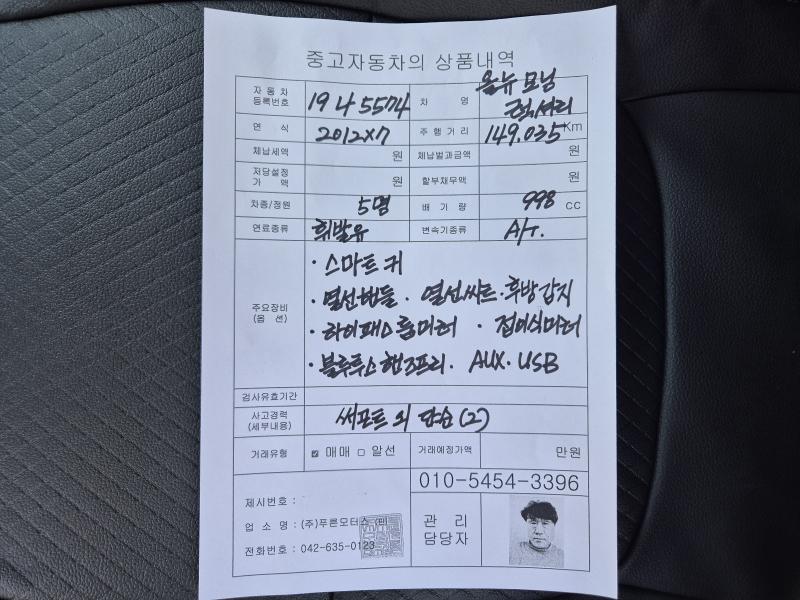 중고자동차의 상품내역
자 동 차 등록번호 19너5574 차 명 올뉴모닝 럭셔리
연 식 2012x7 주 행 거 리 149.035 Km
체납세액 원 체납벌과금액 원
저당설정 가 액 원 할부채무액 원
차종/정원 5명 배 기 량 998 CC
연료종류 휘발유 변속기종류 A/T.
주요장비 (옵 션)
· 스마트키
· 열선핸들 · 열선씨트 · 후방감지
· 하이패스룸미러 · 접이식미러
· 블루투스핸즈프리. AUX. USB
검사유효기간
사고경력 (세부내용) 써포트 외 단순(2)
거래유형 ☑ 매매 □ 알선 거래예정가액 만원
010-5454-3396
제시번호 :
업 소 명 : (주)푸른모터스
전화번호 : 042-635-0123
관 리 담당자